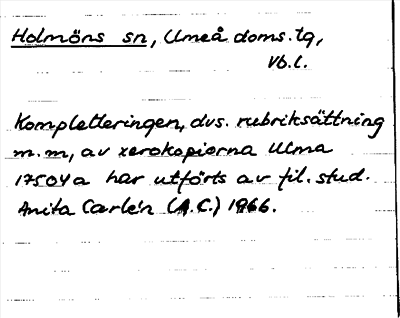 Holmöns sn, Umeå doms.tg,
Vb.l.
Kompletteringen, dvs. rubriksättning
m.m, av xerokopiorna Ulma
17504a har utförts av fil. stud.
Anita Carlén (A.C.) 1966.